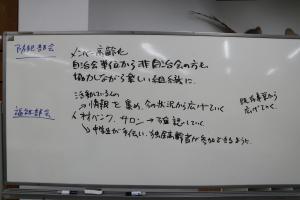 防犯部会
メンバー高齢化
自治会単位から非自治会の方も
協力しながら楽しい組織に。
福祉部会
活動していくもの
情報を集め、今の状況から広げていく
既存事業から
広げていく。
人材バンク、サロン→確認していく
→中学生が手伝い、独居高齢者が参加できるように